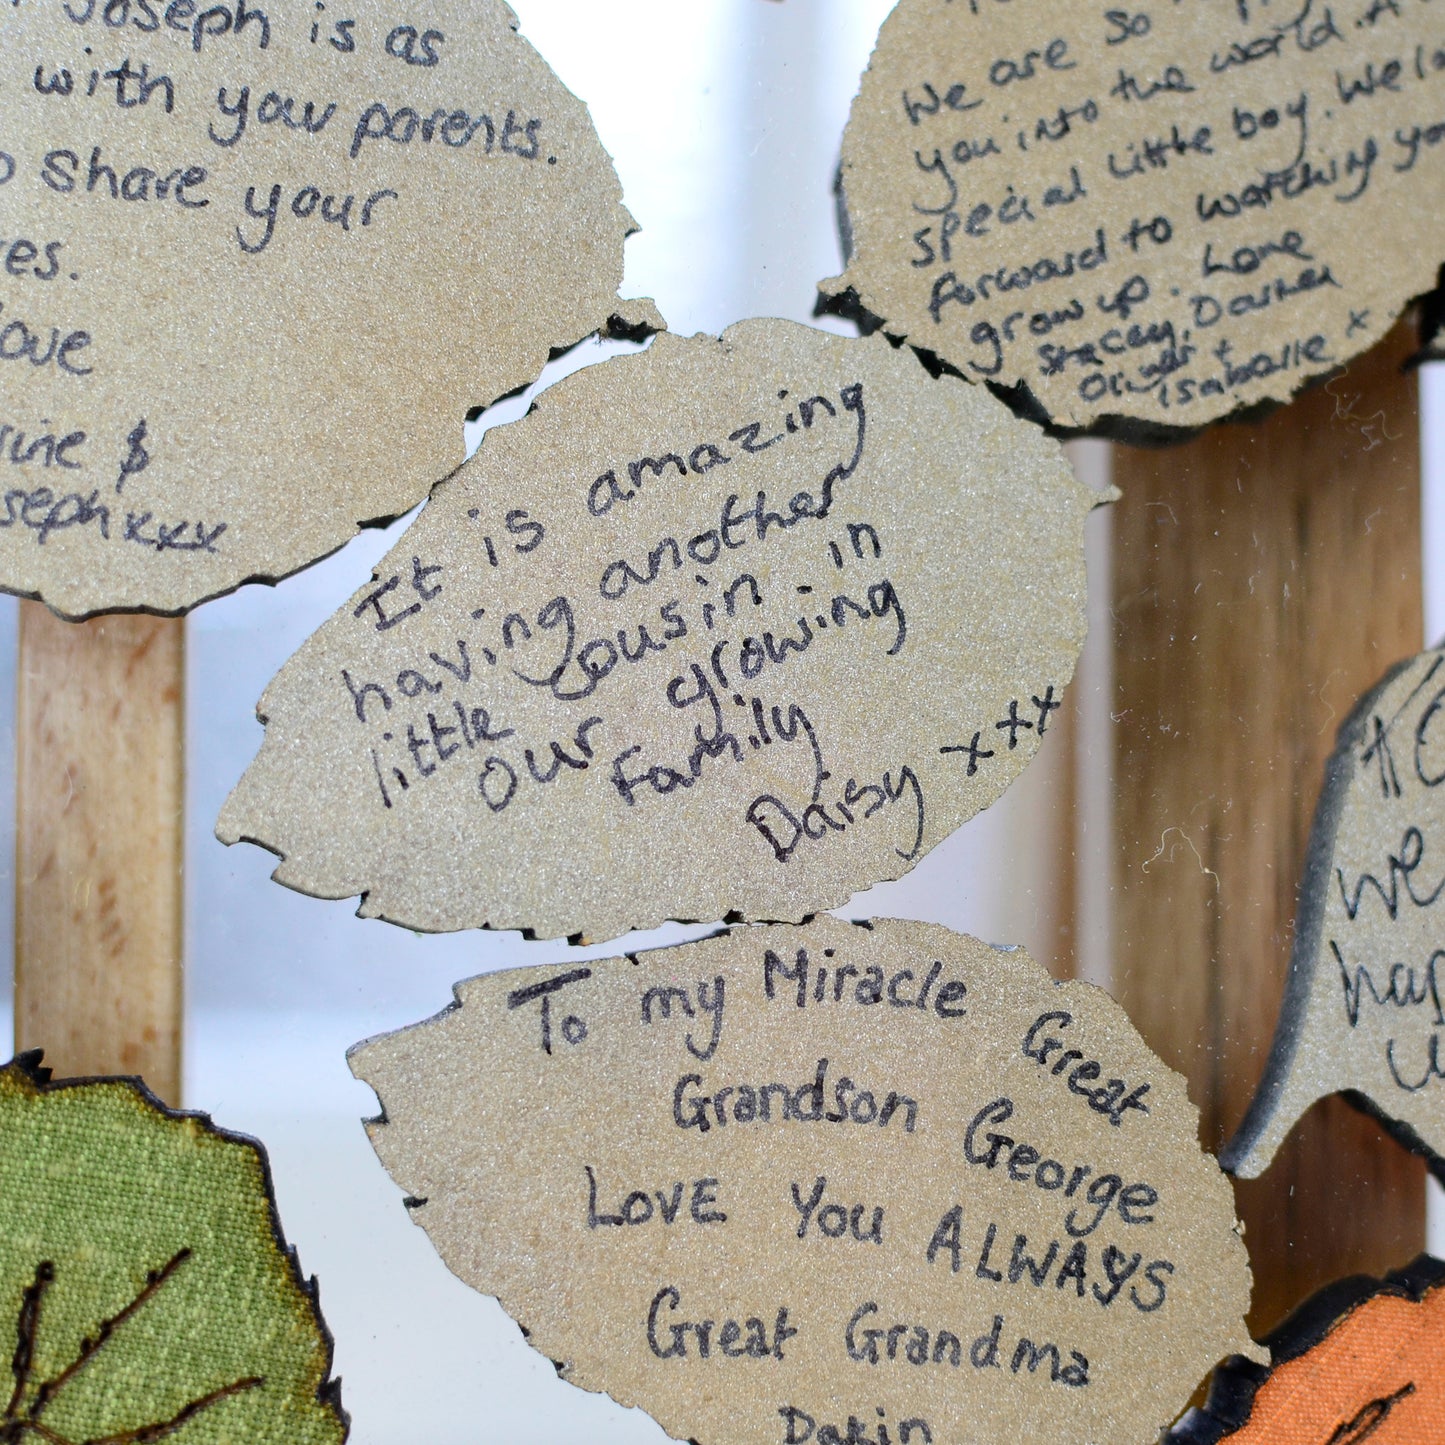 Joseph is as
with your parents.
share your
love
&
xxx
We are so
you into the world. A
special little boy. We
forward to watching you
grow up. Love
Stacey, Darren
Oliver +
Isabelle x
It is amazing
having another
little cousin. in
our growing
family
Daisy xxx
To my Miracle Great
Grandson George
LOVE You ALWAYS
Great Grandma
Dakin
we